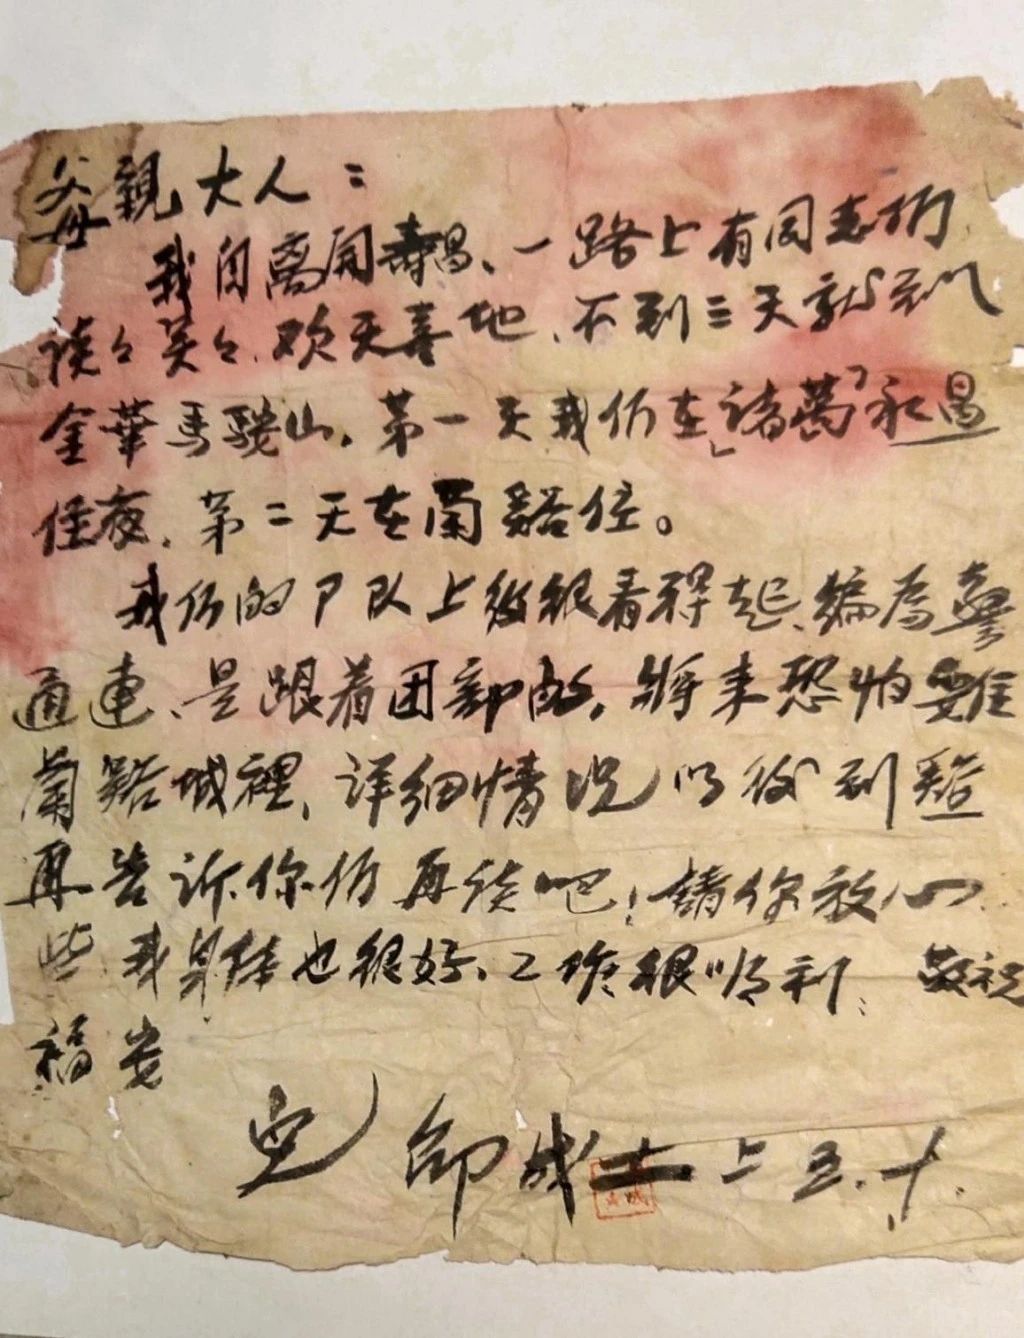 父母親大人：
我自离開壽昌、一路上有同志们
谈々笑々、欢天喜地、不到三天就到
金華馬骏山。第一天我们在「諸葛」永昌
住夜、第二天在蘭谿住。
我们的卩队上级很看得起、编為
通連、是跟着团部的。將来恐怕難
蘭谿城裡、详细情况以后到
再告诉你们再谈吧！請你放心
些、我身体也很好、工作很顺利；敬祝
福安
邵成士上 五.十.